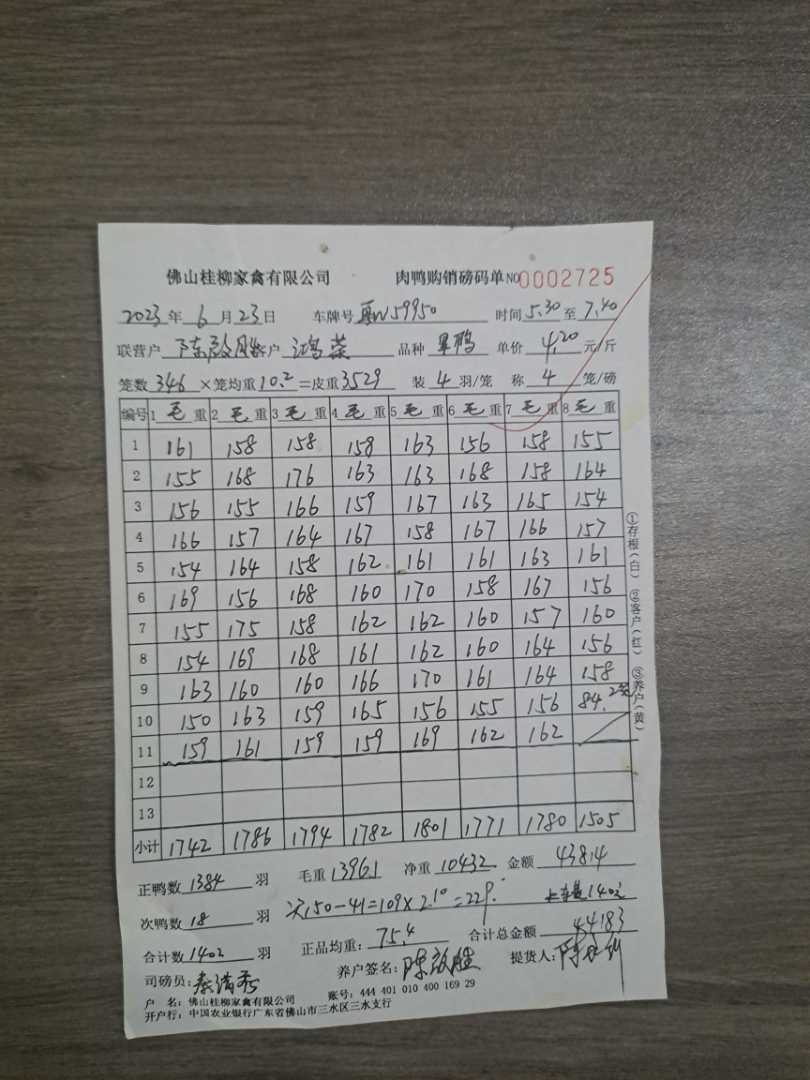 佛山桂柳家禽有限公司 肉鸭购销磅码单 NO 0002725
2023年6月23日 车牌号 59950 时间5.30至7.40
联营户 客户 鸿荣 品种 单鸭 单价 4.20 元/斤
笼数 346 ×笼均重 10.2 =皮重 3529 装 4 羽/笼 称 4 笼/磅
编号 1 毛 重 2 毛 重 3 毛 重 4 毛 重 5 毛 重 6 毛 重 7 毛 重 8 毛 重
1 161 158 158 158 163 156 158 155
2 155 168 176 163 163 168 158 164
3 156 155 166 159 167 163 165 154
4 166 157 164 167 158 167 166 157
5 154 164 158 162 161 161 163 161
6 169 156 168 160 170 158 167 156
7 155 175 158 162 162 160 157 160
8 154 169 168 161 162 160 164 156
9 163 160 160 166 170 161 164 158
10 150 163 159 165 156 155 156 84. 2笼
11 159 161 159 159 169 162 162
12
13
小计 1742 1786 1794 1782 1801 1771 1780 1505
正鸭数 1384 羽 毛重 13961 净重 10432 金额 43814
次鸭数 18 羽 次150-41=109×2.10=229. 1402
合计数 1402 羽 正品均重: 75.4 合计总金额 44183
司磅员: 养户签名: 提货人:
户 名: 佛山桂柳家禽有限公司 账号: 444 401 010 400 169 29
开户行: 中国农业银行广东省佛山市三水区三水支行
①存根(白) ②客户(红) ③养户(黄)